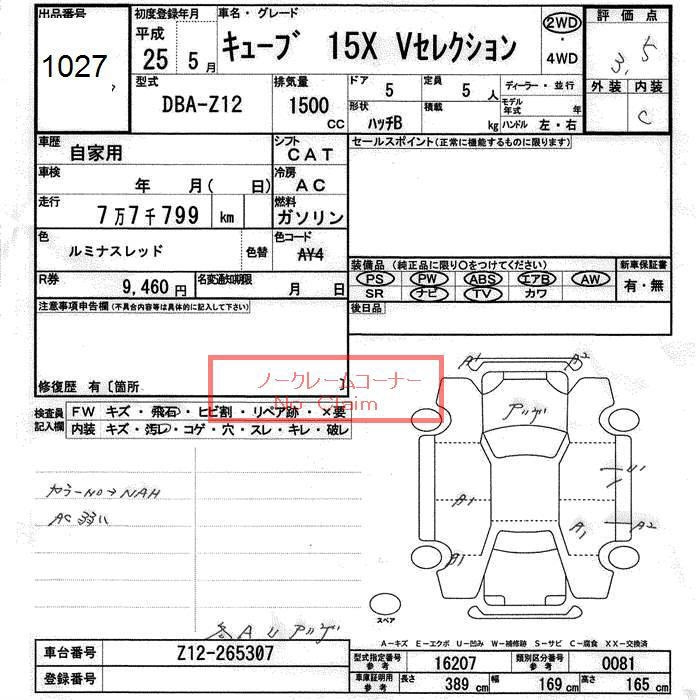 出品番号
1027
初度登録年月
平成
25 5月
車名・グレード
キューブ 15X Vセレクション
2WD
・
4WD
評価点
3.5
外装 内装
C
型式
DBA-Z12
排気量
1500
CC
ドア
5
定員
5 人
形状
ハッチB
積載
kg
ディーラー・並行
モデル年式 年
ハンドル 左・右
車歴
自家用
シフト
CAT
車検
年 月( 日)
冷房
AC
走行
7万7千799 km
燃料
ガソリン
色
ルミナスレッド
色替
色コード
AY4
R券
9,460円
名変通知期限
月 日
セールスポイント(正常に機能するものに限ります)
装備品 (純正品に限り○をつけてください)
PS PW ABS エアB AW
SR ナビ TV カワ
新車保証書
有・無
後日品
注意事項申告欄(不具合内容等は具体的に記入して下さい)
修復歴 有〔箇所 〕
ノークレームコーナー
No Claim
検査員
記入欄
FW キズ・飛石・ヒビ割・リペア跡・×要
内装 キズ・汚レ・コゲ・穴・スレ・キレ・破レ
カラーNO→NAH
AC弱い
A1
A2
アツゲ
A1
A1
A1
A2
スペア
各AUアツゲ
A-キズ E-エクボ U-凹み W-補修跡 S-サビ C-腐食 XX-交換済
車台番号
Z12-265307
登録番号
型式指定番号
参考
16207
類別区分番号
参考
0081
車庫証明用
参考
長さ 389 cm 幅 169 cm 高さ 165 cm